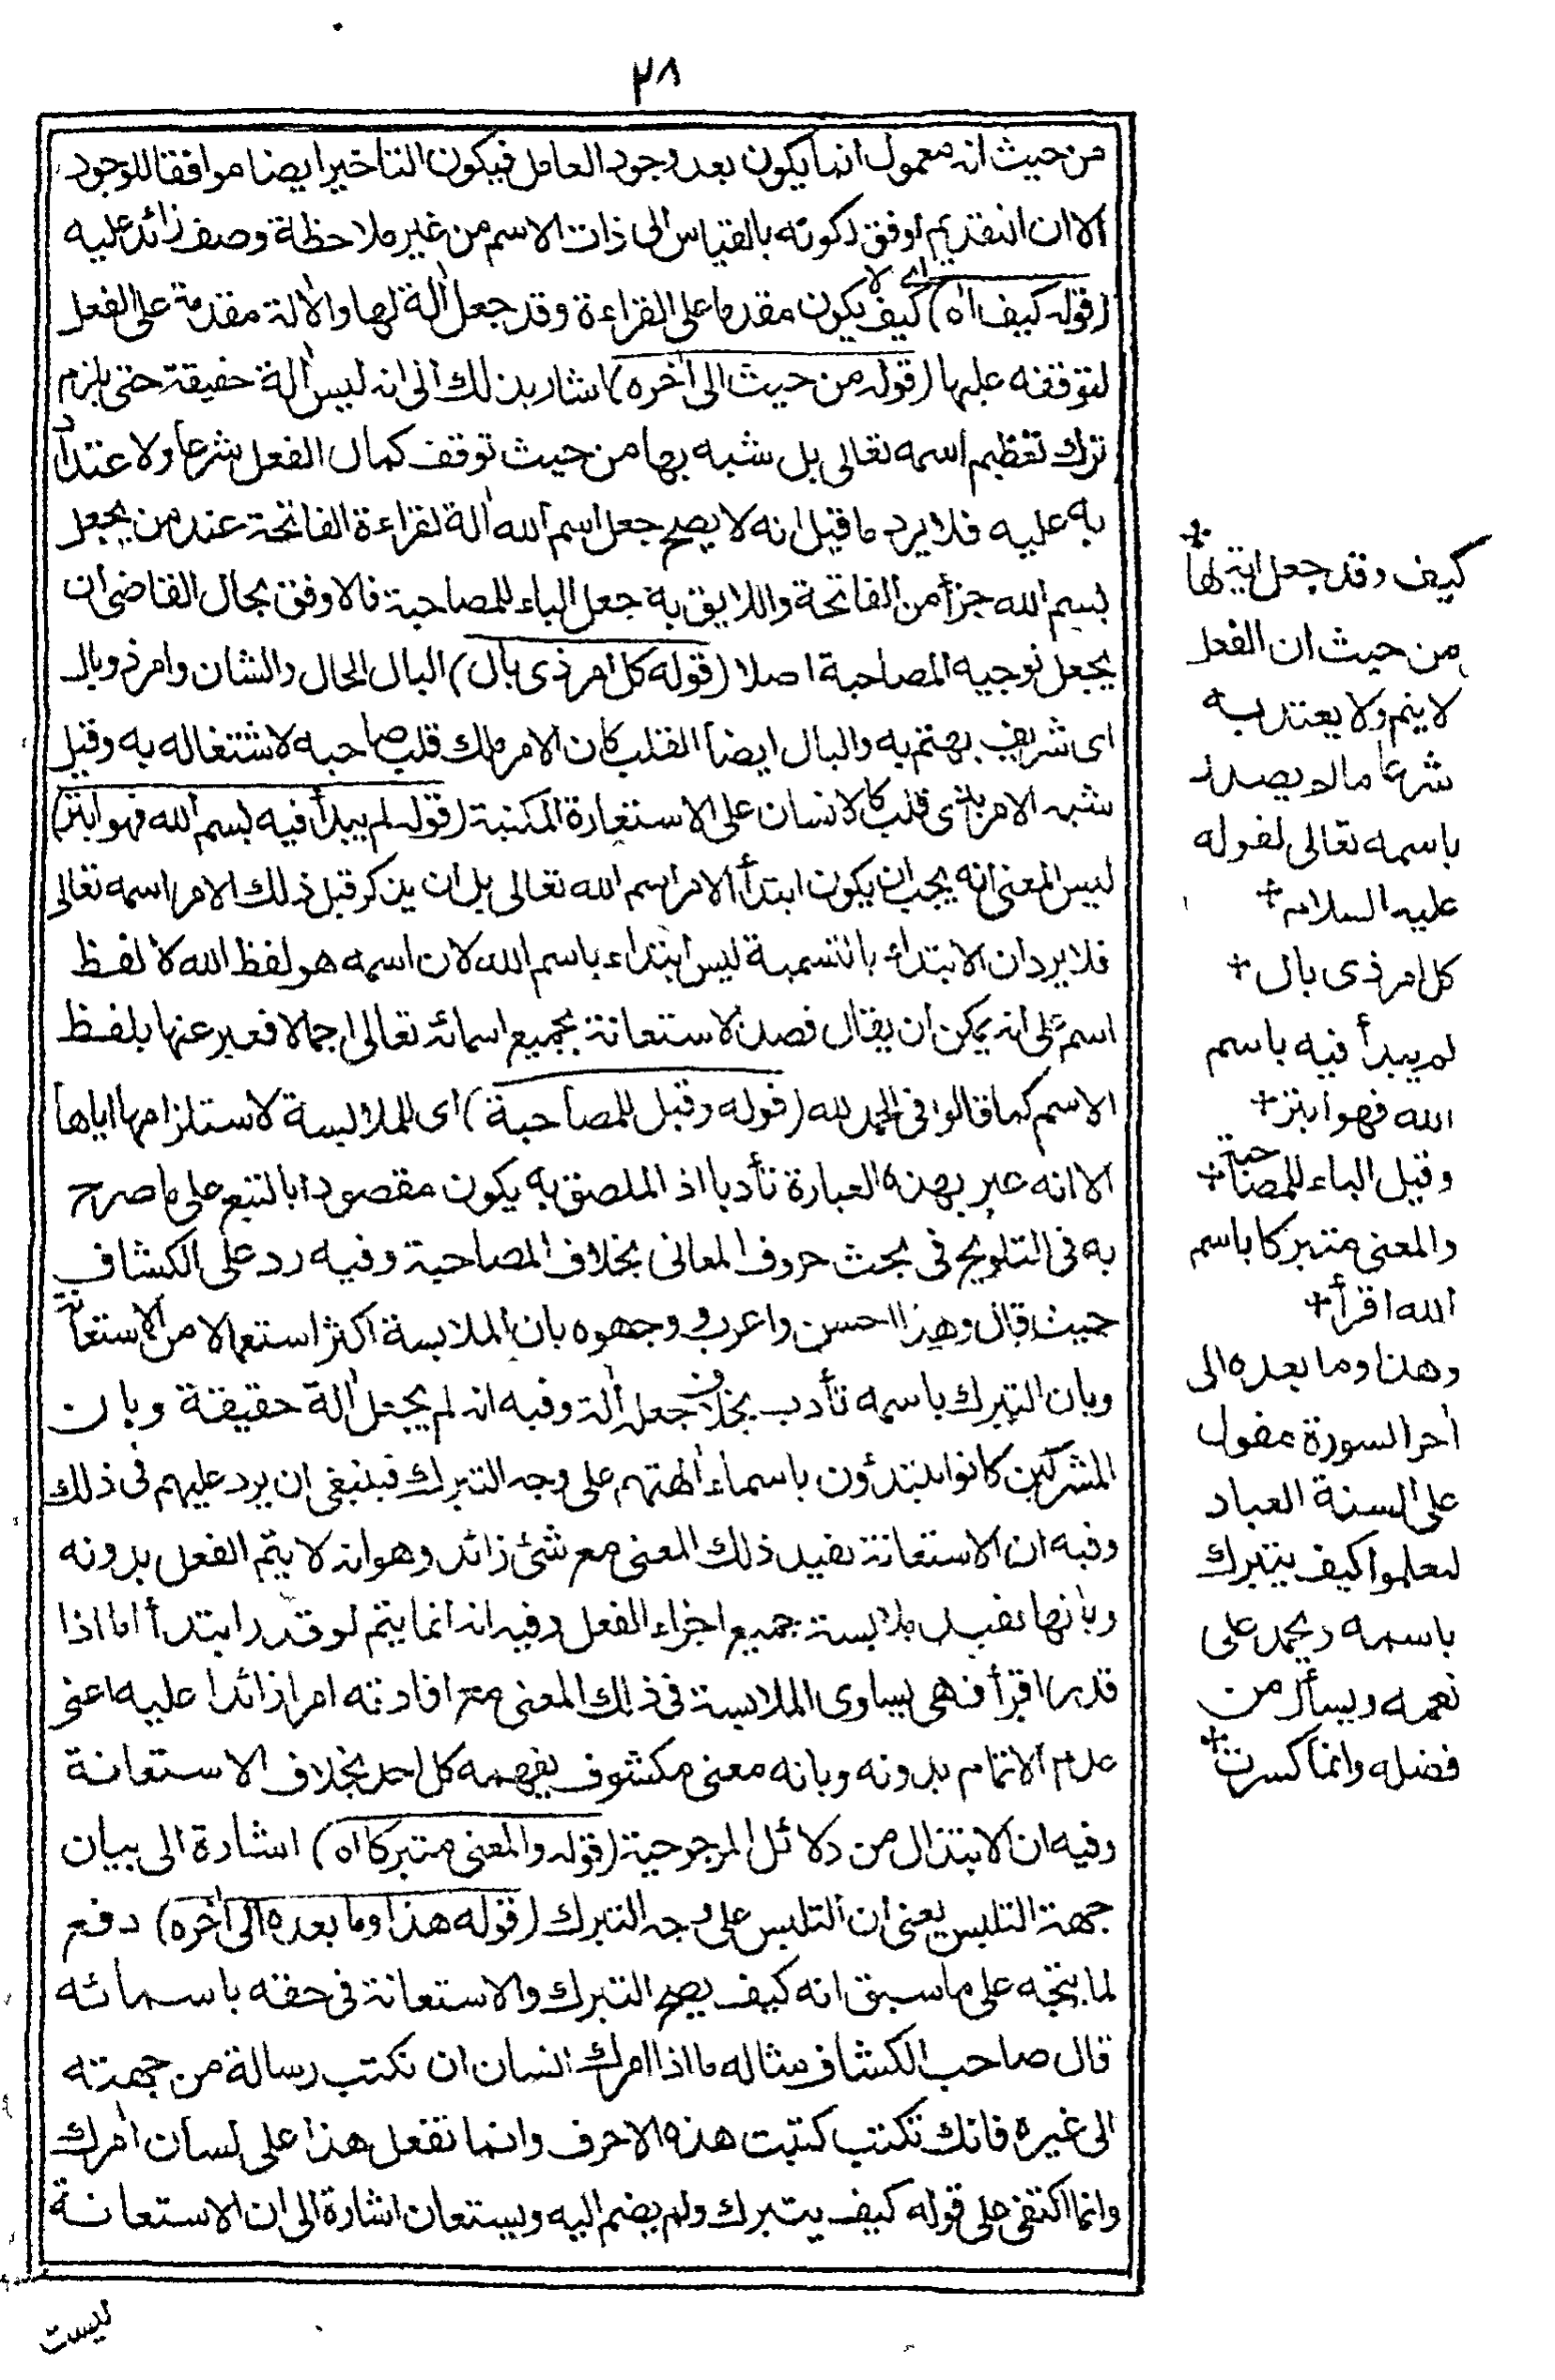 ٢٨
من حيث انه معمول انما يكون بعد وجود العامل فيكون التأخير ايضا موافقا للوجود
الا ان التقديم اوفق لكونه بالقياس الى ذات الاسم من غير ملاحظة وصف زائد عليه
(قوله كيف اه) اى كيف لا يكون مقدما على القراءة وقد جعل آلة لها والآلة مقدمة على الفعل
لتوقفه عليها (قوله من حيث الى آخره) اشار بذلك الى انه ليس آلة حقيقة حتى يلزم
ترك تعظيم اسمه تعالى بل شبه بها من حيث توقف كمال الفعل شرعا والاعتداد
به عليه فلا يرد ما قيل انه لا يصح جعل اسم الله آلة لقراءة الفاتحة عند من يجعل
بسم الله جزأ من الفاتحة واللايق به جعل الباء للمصاحبة فالاوفق بحال القاضى ان
يجعل توجيه المصاحبة اصلا (قوله كل امر ذى بال) البال الحال والشان وامر ذو بال
اى شريف يهتم به والبال ايضا القلب كان الامر ملك قلب صاحبه لاشتغاله به وقيل
شبه الامر بذى قلب كالانسان على الاستعارة المكنية (قوله لم يبدأ فيه بسم الله فهو ابتر)
ليس المعنى انه يجب ان يكون ابتدأ الامر اسم الله تعالى بل ان يذكر قبل ذلك الامر اسمه تعالى
فلا يرد ان الابتداء بالتسمية ليس ابتداء باسم الله لان اسمه هو لفظ الله لا لفظ
اسم على انه يمكن ان يقال قصد الاستعانة بجميع اسمائه تعالى اجمالا فعبر عنها بلفظ
الاسم كما قالوا فى الحمد لله (قوله وقيل للمصاحبة) اى للملابسة لاستلزامها اياها
الا انه عبر بهذه العبارة تأدبا اذ الملصق به يكون مقصودا بالتبع على ما صرح
به فى التلويح فى بحث حروف المعانى بخلاف المصاحبة وفيه رد على الكشاف
حيث قال وهذا احسن واعرب ووجهوه بان الملابسة اكثر استعمالا من الاستعانة
وبان التبرك باسمه تأدب بخلاف جعله آلة وفيه انه لم يجعل آلة حقيقة وبان
المشركين كانوا يبتدؤن باسماء آلهتهم على وجه التبرك فينبغى ان يرد عليهم فى ذلك
وفيه ان الاستعانة تفيد ذلك المعنى مع شئ زائد وهو انه لا يتم الفعل بدونه
وبانها تفيد ملابسة جميع اجزاء الفعل وفيه انه انما يتم لو قدر ابتدأ اما اذا
قدر اقرأ فهى يساوى الملابسة فى ذلك المعنى مع افادته امرا زائدا عليه اعنى
عدم الاتمام بدونه وبانه معنى مكشوف يفهمه كل احد بخلاف الاستعانة
وفيه ان الابتذال من دلائل المرجوحية (قوله والمعنى متبركا اه) اشارة الى بيان
جهة التلبس يعنى ان التلبس على وجه التبرك (قوله هذا وما بعده الى آخره) دفع
لما يتجه على ما سبق انه كيف يصح التبرك والاستعانة فى حقه باسمائه
قال صاحب الكشاف مثاله ما اذا امرك انسان ان تكتب رسالة من جهته
الى غيره فانك تكتب كتبت هذه الاحرف وانما تفعل هذا على لسان آمرك
وانما اكتفى على قوله كيف يتبرك ولم يضم اليه ويستعان اشارة الى ان الاستعانة
ليست
كيف وقد جعل آلة لها
من حيث ان الفعل
لا يتم ولا يعتد به
شرعا ما لم يصدر
باسمه تعالى لقوله
عليه السلام
كل امر ذى بال
لم يبدأ فيه باسم
الله فهو ابتر
وقيل الباء للمصاحبة
والمعنى متبركا باسم
الله اقرأ
وهذا وما بعده الى
آخر السورة مقول
على السنة العباد
ليعلموا كيف يتبرك
باسمه ويحمد على
نعمه ويسأل من
فضله وانما كسرت